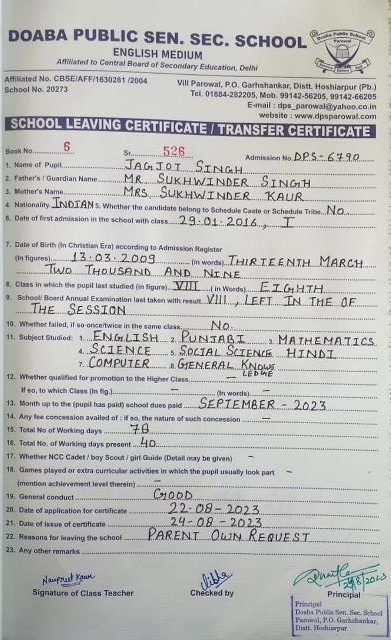 DOABA PUBLIC SEN. SEC. SCHOOL
ENGLISH MEDIUM
Affiliated to Central Board of Secondary Education, Delhi
Doaba Public School
Affiliated No. CBSE/AFF/1630281 /2004
School No. 20273
Vill Parowal, P.O. Garhshankar, Distt. Hoshiarpur (Pb.)
Tel. 01884-282205, Mob. 99142-56205, 99142-66205
E-mail : dps_parowal@yahoo.co.in
website : www.dpsparowal.com
SCHOOL LEAVING CERTIFICATE / TRANSFER CERTIFICATE
Book No. 6 Sr. 526 Admission No. DPS-6790
1. Name of Pupil JAGJOT SINGH
2. Father's / Guardian Name MR SUKHWINDER SINGH
3. Mother's Name MRS SUKHWINDER KAUR
4. Nationality INDIANS Whether the candidate belong to Schedule Caste or Schedule Tribe No
6. Date of first admission in the school with class 29.01.2016, I
7. Date of Birth (In Christian Era) according to Admission Register
(In figures) 13.03.2009 (In words) THIRTEENTH MARCH
TWO THOUSAND AND NINE
8. Class in which the pupil last studied (in figure) VIII (in Words) EIGHTH
9. School/ Board Annual Examination last taken with result VIII, LEFT IN THE OF
THE SESSION
10. Whether failed, if so once/twice in the same class No.
11. Subject Studied: 1. ENGLISH 2. PUNJABI 3. MATHEMATICS
4. SCIENCE 5. SOCIAL SCIENCE HINDI
7. COMPUTER 8. GENERAL KNOW-
LEDGE
12. Whether qualified for promotion to the Higher Class –
If so, to which Class (in fig.) – (In words) –
13. Month up to the (pupil has paid) school dues paid SEPTEMBER - 2023
14. Any fee concession availed of : if so, the nature of such concession –
15. Total No of Working days 78
16. Total No. of Working days present 40
17. Whether NCC Cadet / boy Scout / girl Guide (Detail may be given) –
18. Games played or extra curricular activities in which the pupil usually look part –
(mention achievement level therein) –
19. General conduct GOOD
20. Date of application for certificate 22-08-2023
21. Date of issue of certificate 24-08-2023
22. Reasons for leaving the school PARENT OWN REQUEST
23. Any other remarks
Navpreet Kaur
Signature of Class Teacher
Checked by
Principal
Principal
Doaba Public Sen. Sec. School
Parowal, P.O. Garhshankar,
Distt. Hoshiarpur